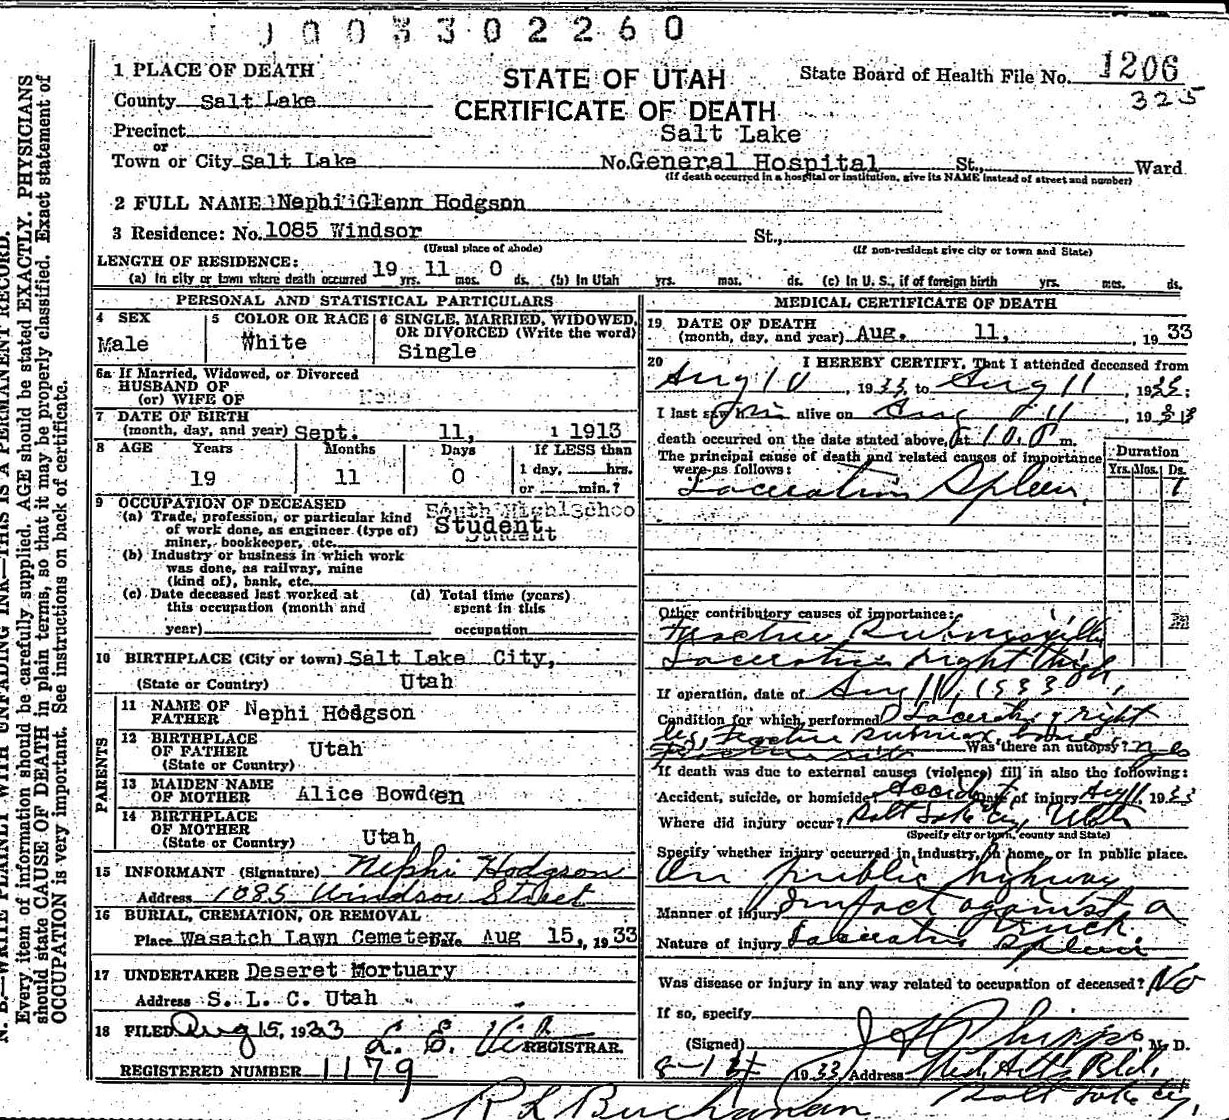 0003302260
1 PLACE OF DEATH
STATE OF UTAH
CERTIFICATE OF DEATH
State Board of Health File No. 1206
325
County Salt Lake
Precinct
or
Town or City Salt Lake
Salt Lake
No. General Hospital St., Ward
(If death occurred in a hospital or institution, give its NAME instead of street and number)
2 FULL NAME Nephi Glenn Hodgson
3 Residence: No. 1085 Windsor St.,
(Usual place of abode)
(If non-resident give city or town and State)
LENGTH OF RESIDENCE:
(a) In city or town where death occurred 19 yrs. 11 mos. 0 ds. (b) In Utah yrs. mos. ds. (c) In U. S., if of foreign birth yrs. mos. ds.
PERSONAL AND STATISTICAL PARTICULARS
4 SEX
Male
5 COLOR OR RACE
White
6 SINGLE, MARRIED, WIDOWED,
OR DIVORCED (Write the word)
Single
6a If Married, Widowed, or Divorced
HUSBAND OF
(or) WIFE OF None
7 DATE OF BIRTH
(month, day, and year) Sept. 11, 1913
8 AGE Years Months Days If LESS than
1 day, hrs.
19 11 0
or min.?
9 OCCUPATION OF DECEASED
(a) Trade, profession, or particular kind
of work done, as engineer (type of)
miner, bookkeeper, etc.
South High Schoo
Student
Student
(b) Industry or business in which work
was done, as railway, mine
(kind of), bank, etc.
(c) Date deceased last worked at
this occupation (month and
year)
(d) Total time (years)
spent in this
occupation
10 BIRTHPLACE (City or town) Salt Lake City,
(State or Country) Utah
PARENTS
11 NAME OF
FATHER Nephi Hodgson
12 BIRTHPLACE
OF FATHER Utah
(State or Country)
13 MAIDEN NAME
OF MOTHER Alice Bowden
14 BIRTHPLACE
OF MOTHER
(State or Country) Utah
15 INFORMANT (Signature) Nephi Hodgson
Address 1085 Windsor Street
16 BURIAL, CREMATION, OR REMOVAL
Place Wasatch Lawn Cemetery Date Aug 15, 1933
17 UNDERTAKER Deseret Mortuary
Address S. L. C. Utah
18 FILED Aug 15, 1933
REGISTRAR.
REGISTERED NUMBER 1179
MEDICAL CERTIFICATE OF DEATH
19 DATE OF DEATH
(month, day, and year) Aug. 11, 1933
20 I HEREBY CERTIFY, That I attended deceased from
Aug 10, 1933, to Aug 11, 1933;
I last saw him alive on Aug 11, 1933
death occurred on the date stated above, at m.
The principal cause of death and related causes of importance
were as follows:
Duration
Yrs. Mos. Ds.
Laceration Spleen, 1
Other contributory causes of importance:
Fracture
Laceration right thigh
If operation, date of Aug 11, 1933
Condition for which performed Laceration of right
leg, Fracture
Was there an autopsy? yes
If death was due to external causes (violence) fill in also the following:
Accident, suicide, or homicide Accident Date of injury Aug 11, 1933
Where did injury occur? Salt Lake City Utah
(Specify city or town, county and State)
Specify whether injury occurred in industry, in home, or in public place.
On public highway
Manner of injury Impact against a
Nature of injury Laceration Spleen
Was disease or injury in any way related to occupation of deceased? No
If so, specify
(Signed) J H Phipps M. D.
1933 Address Med Arts Bld.
Salt Lake City,
R L Buchanan
N. B.—WRITE PLAINLY WITH UNFADING INK—THIS IS A PERMANENT RECORD.
Every item of information should be carefully supplied. AGE should be stated EXACTLY. PHYSICIANS
should state CAUSE OF DEATH in plain terms, so that it may be properly classified. Exact statement of
OCCUPATION is very important. See instructions on back of certificate.